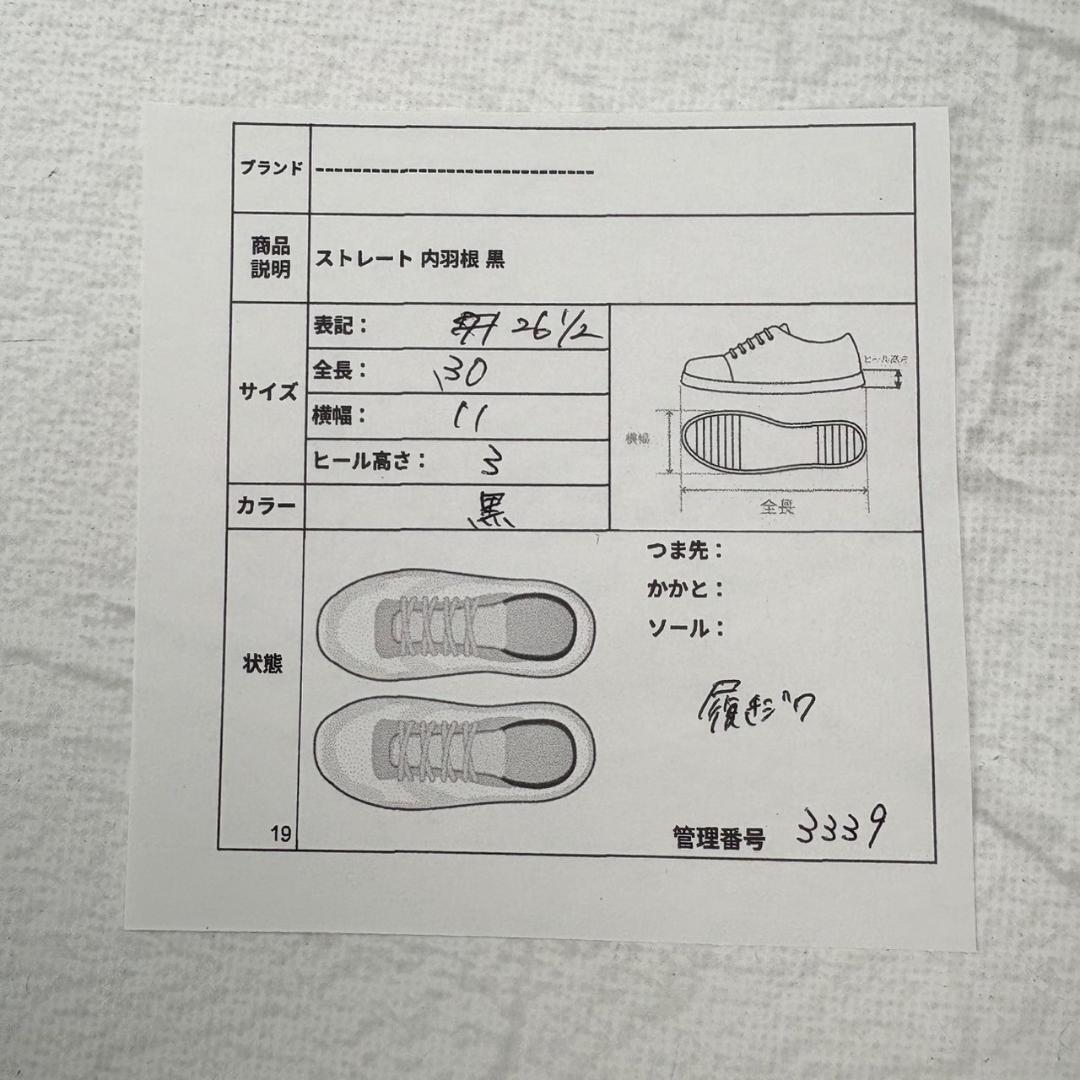 ブランド ------------------------------
商品
説明
ストレート 内羽根 黒
サイズ
表記： 26 1/2
全長： 30
横幅： 11
ヒール高さ： 3
ヒール高さ
横幅
全長
カラー 黒
状態
つま先：
かかと：
ソール：
履きジワ
19
管理番号 3339